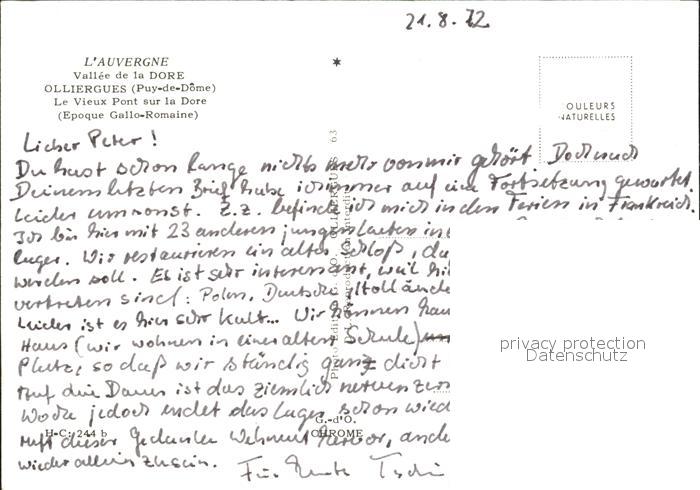 21.8.72
L'AUVERGNE
Vallée de la DORE
OLLIERGUES (Puy-de-Dôme)
Le Vieux Pont sur la Dore
(Epoque Gallo-Romaine)
OULEURS
NATURELLES
Lieber Peter!
Du hast schon lange nichts mehr von mir gehört Doch nach
Deinem letzten Brief habe ich immer auf eine Fortsetzung gewartet.
Leider umsonst. Z.Z. befinde ich mich in den Ferien in Frankreich.
Ich bin hier mit 23 anderen jungen Leuten in
lager. Wir restaurieren ein altes Schloß, da
werden soll. Es ist sehr interessant, weil hi
vertreten sind: Polen, Deutsche, Hollände
Leider ist es hier sehr kalt... Wir können
Haus (wir wohnen in einer alten Schule)
Platz, so daß wir ständig ganz dicht
Auf die Dauer ist das ziemlich nerven
Woche jedoch endet das Lager schon wied
ruft dieser Gedanke Wehmut hervor, ande
wieder allein zu sein.
Für heute Tschü
63
privacy protection
Datenschutz
H-C: 244 b
G.-d'O.
CHROME